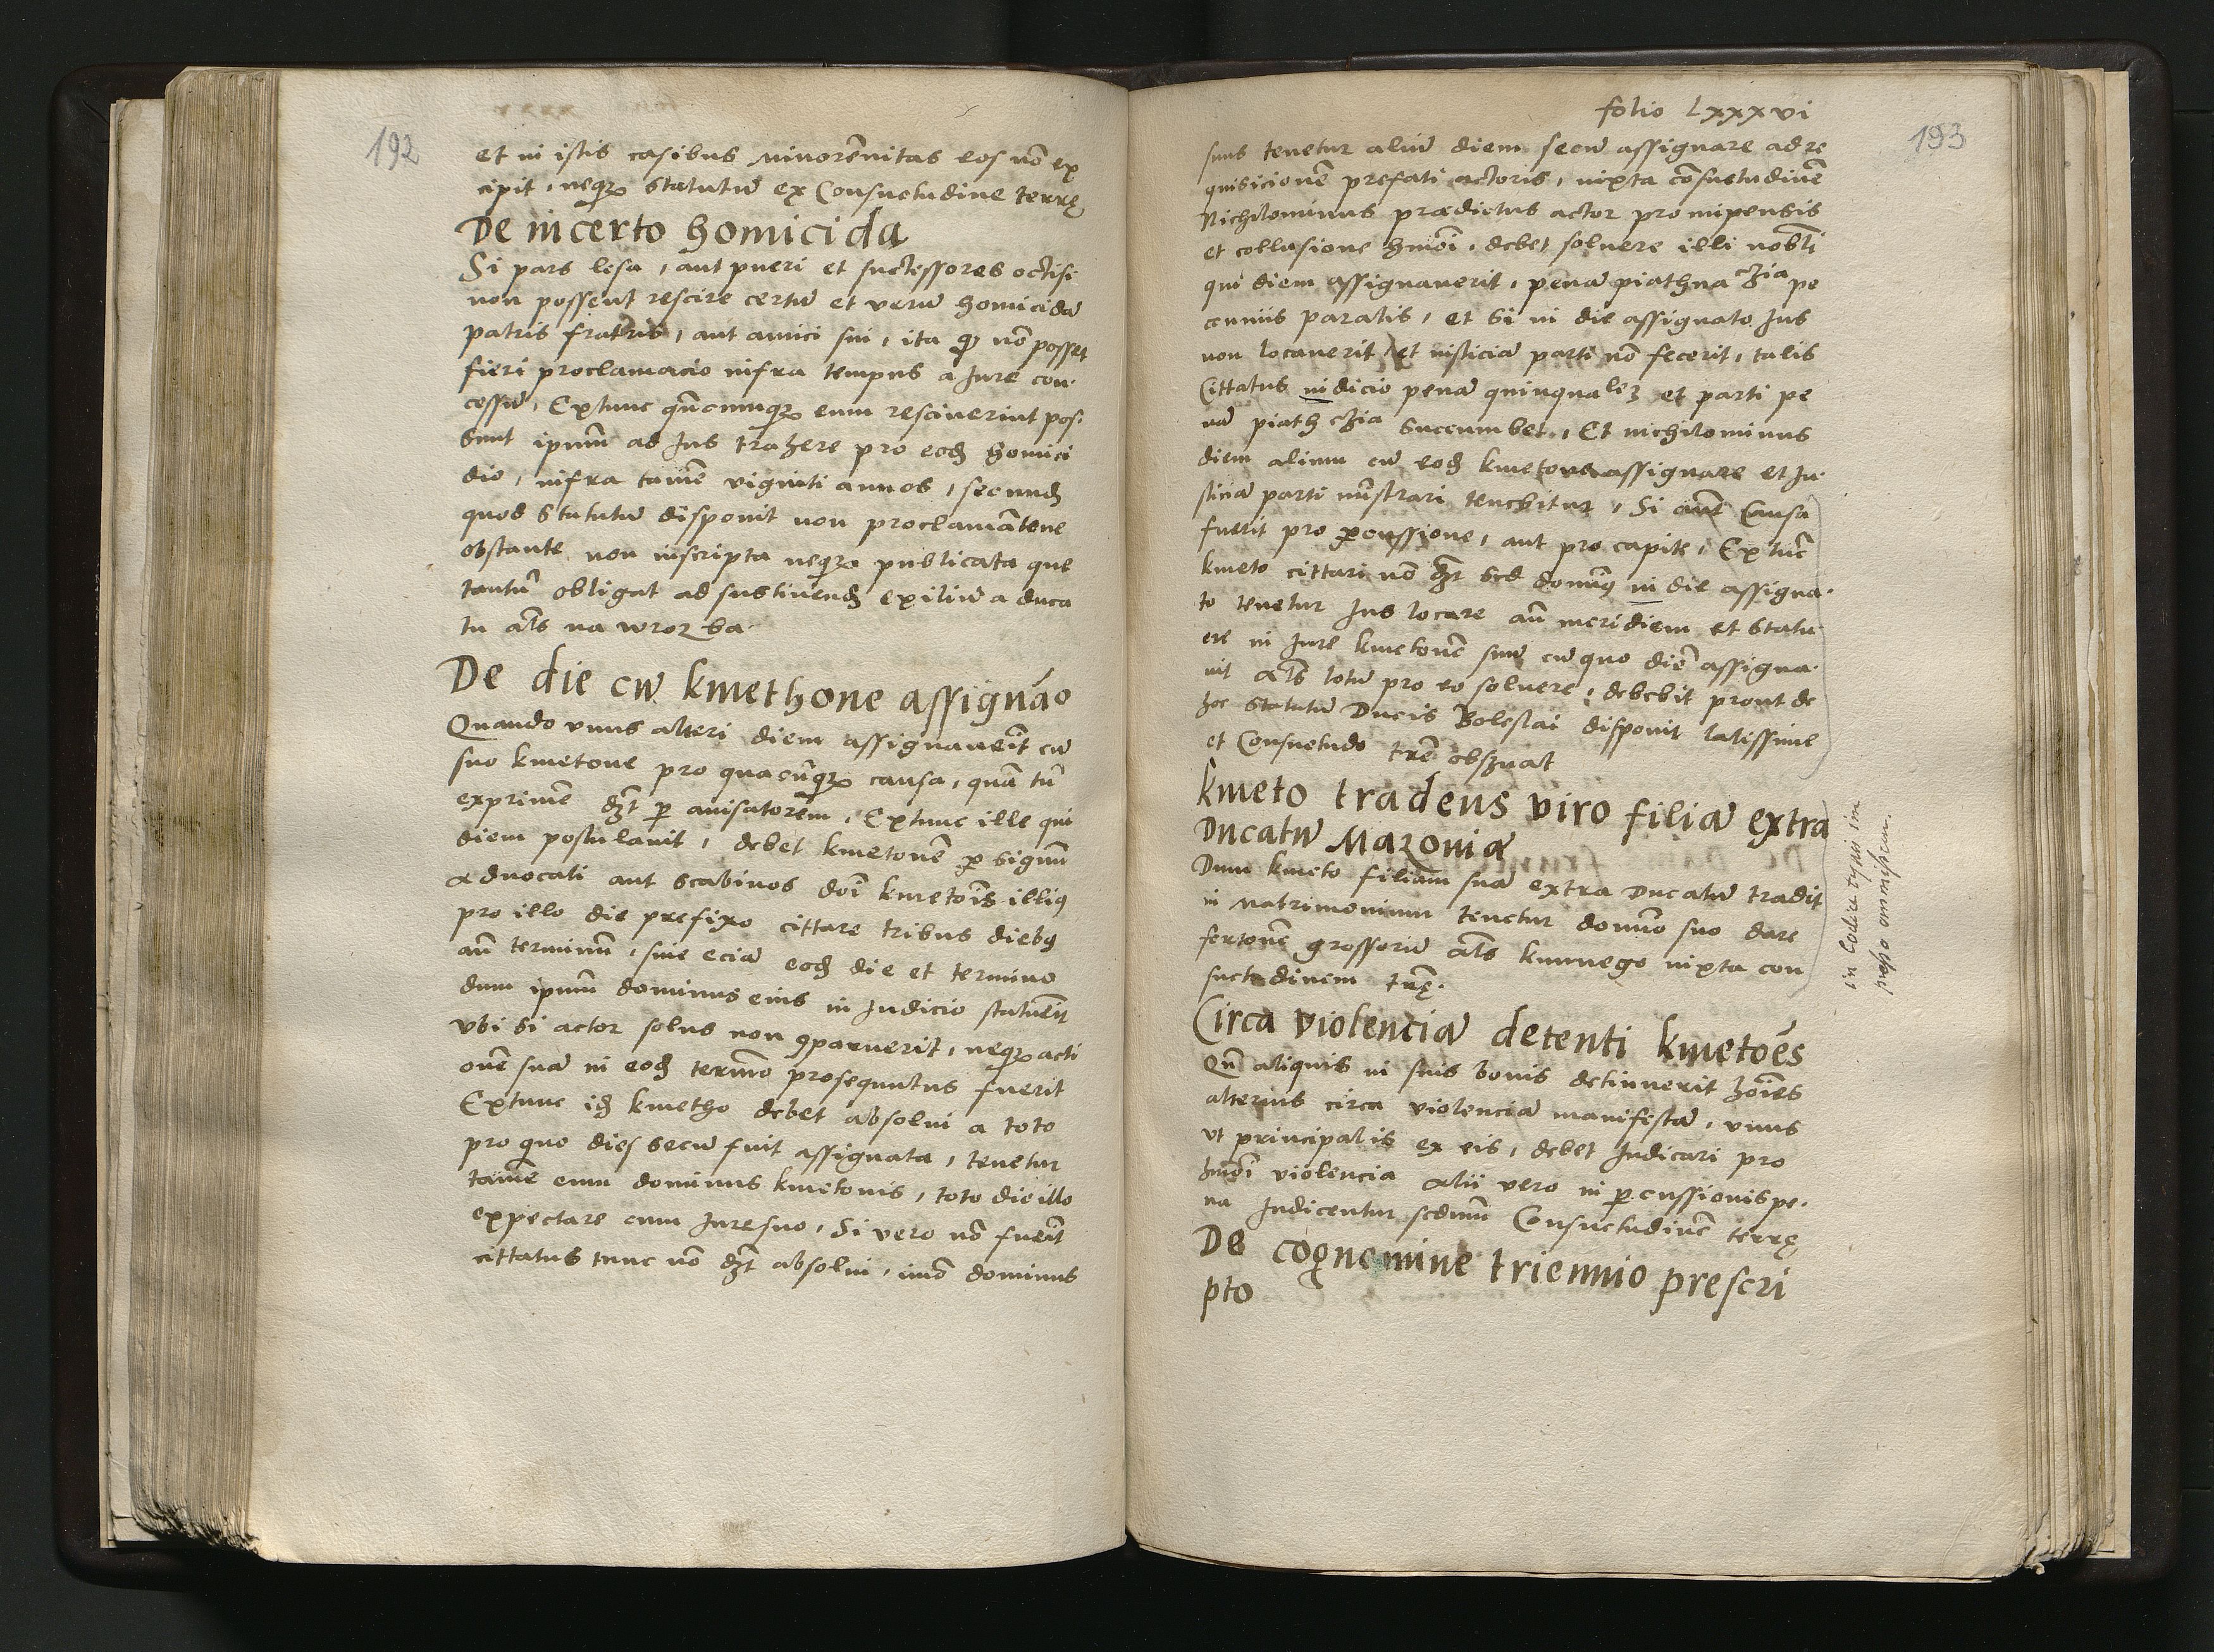 192
et in istis casibus minorēnitas eos nō ex
cipit, neqꝫ statutū ex Consuetudine terrę
De incerto homicida
Si pars lesa, aut pueri et successores occisi
non possent rescire certū et verū homicidā
patris fratris, aut amici sui, ita ꝙ nō posset
fieri proclamacio infra tempus a Jure con-
cessū, Extunc qn̄cumqꝫ eum resciverint pos-
sunt ipum̄ ad Jus trahere pro eodꝫ homici
dio, infra tamē viginti annos, secundꝫ
quod statutū disponit non proclamātone
obstante non inscripta neqꝫ publicata que
tantū obligat ad sustinendꝫ exiliū a duca
tu als̄ na wrozba
De die cū kmethone assignāo
Quando vnus alteri diem assignaverit cū
suo kmetone pro quacūqꝫ causa, quā tū
exprimē dꝫt ꝑ avisatorem, Extunc ille qui
diem postulavit, debet kmetonē ꝑ signū
advocati aut scabinos doī kmetoīs illiꝰ
pro illo die prefixo cittare tribus diebꝰ
an̄ terminū, sive eciā eodꝫ die et termino
dum ipum̄ dominus eius in Judicio statuēit
vbi si actor solus non ꝯparuerit, neqꝫ acti
onē suā in eodꝫ termīo prosequutus fuerit
Extunc idꝫ kmetho debet absolvi a toto
pro quo dies secū fuit assignata, tenetur
tamē eum dominus kmetonis, toto die illo
expectare cum Jure suo, Si vero nō fuēit
cittatus tunc nō dꝫt absolvi, imō dominus
folio Lxxxvi
193
suus tenetur aliū diem secū assignare ad re
quisicionē prefati actoris, iuxta cōsuetudinē
Nichilominus prædictus actor pro inpensis
et collusione hmōi, debet solvere illi nobl̄i
qui diem assignaverit, penā piathnaczia pe
cuniis paratis, et si in die assignato Jus
non locaverit et iusticiā parti nō fecerit, talis
Cittatus iudicio penā quinqualeꝫ et parti pe
nā piathczia succumbet, Et nichilominus
diem alium cū eodꝫ kmetone assignare et Ju-
sticiā parti mīstrari tenebitur, Si aūt Causa
fuerit pro ꝑcussione, aut pro capite, Extūc
kmeto cittari nō dꝫt sed domīꝰ in die assigna-
to tenetur Jus locare an̄ meridiem et statu
ere in Jure kmetonē suū cū quo diē assigna-
vit als̄ totū pro eo solvere, debebit prout de
hoc statutū Ducis Boleslai disponit latissime
et Consuetudo trē obsꝫvat
kmeto tradens viro filiā extra
Ducatū Mazoniæ
Dum kmeto filiam suā extra Ducatū tradit
in matrimonium tenetur domīo suo dare
fertonē grossorū als̄ kunnego iuxta con
suetudinem trę.
in Codice typis im
presso omissum.
Circa violenciā detenti kmetōes
Qn̄ aliquis in suis bonis detinuerit hōies
alterius circa violenciā manifestā, vnus
vt principalis ex eis, debet Judicari pro
hmōi violencia alii vero in ꝑcussionis pe-
na Judicentur scdum̄ Consuetudinē terrę
De cognomine triennio prescri
pto